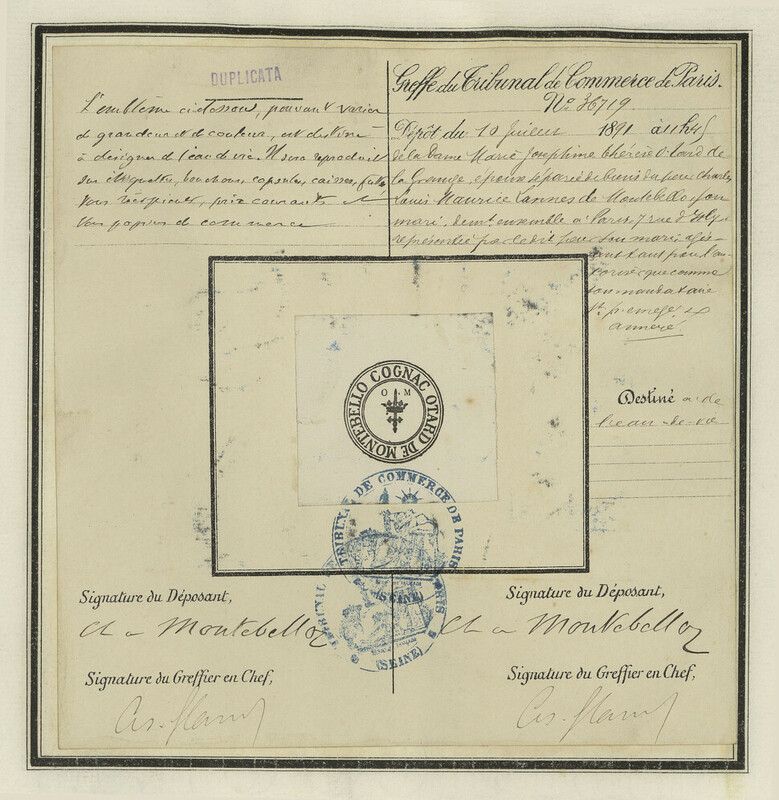 DUPLICATA
L'emblème ci-dessous, pouvant varier
de grandeur et de couleur, est destiné
à désigner de l'eau de vie. Il sera reproduit
sur étiquettes, bouchons, capsules, caisses, fûts,
tous récipients, prix courants et
tous papiers de commerce
Greffe du Tribunal de Commerce de Paris.
No. 36719.
Dépôt du 10 Juillet 1891 à 11h45
de la Dame Marie Joséphine Thérèse Otard de
la Grange, épouse séparée de biens du sieur Charles
Louis Maurice Lannes de Montebello, son
mari, demt ensemble à Paris, 7 rue
représentée par le dit sieur son mari,
tant pour
que comme
son mandataire
annexé.
COGNAC OTARD DE MONTEBELLO
O M
Destiné à de
l'eau-de-vie
TRIBUNAL DE COMMERCE DE PARIS
(SEINE)
TRIBUNAL PARIS
(SEINE)
Signature du Déposant,
Montebello
Signature du Greffier en Chef,
Signature du Déposant,
Montebello
Signature du Greffier en Chef,